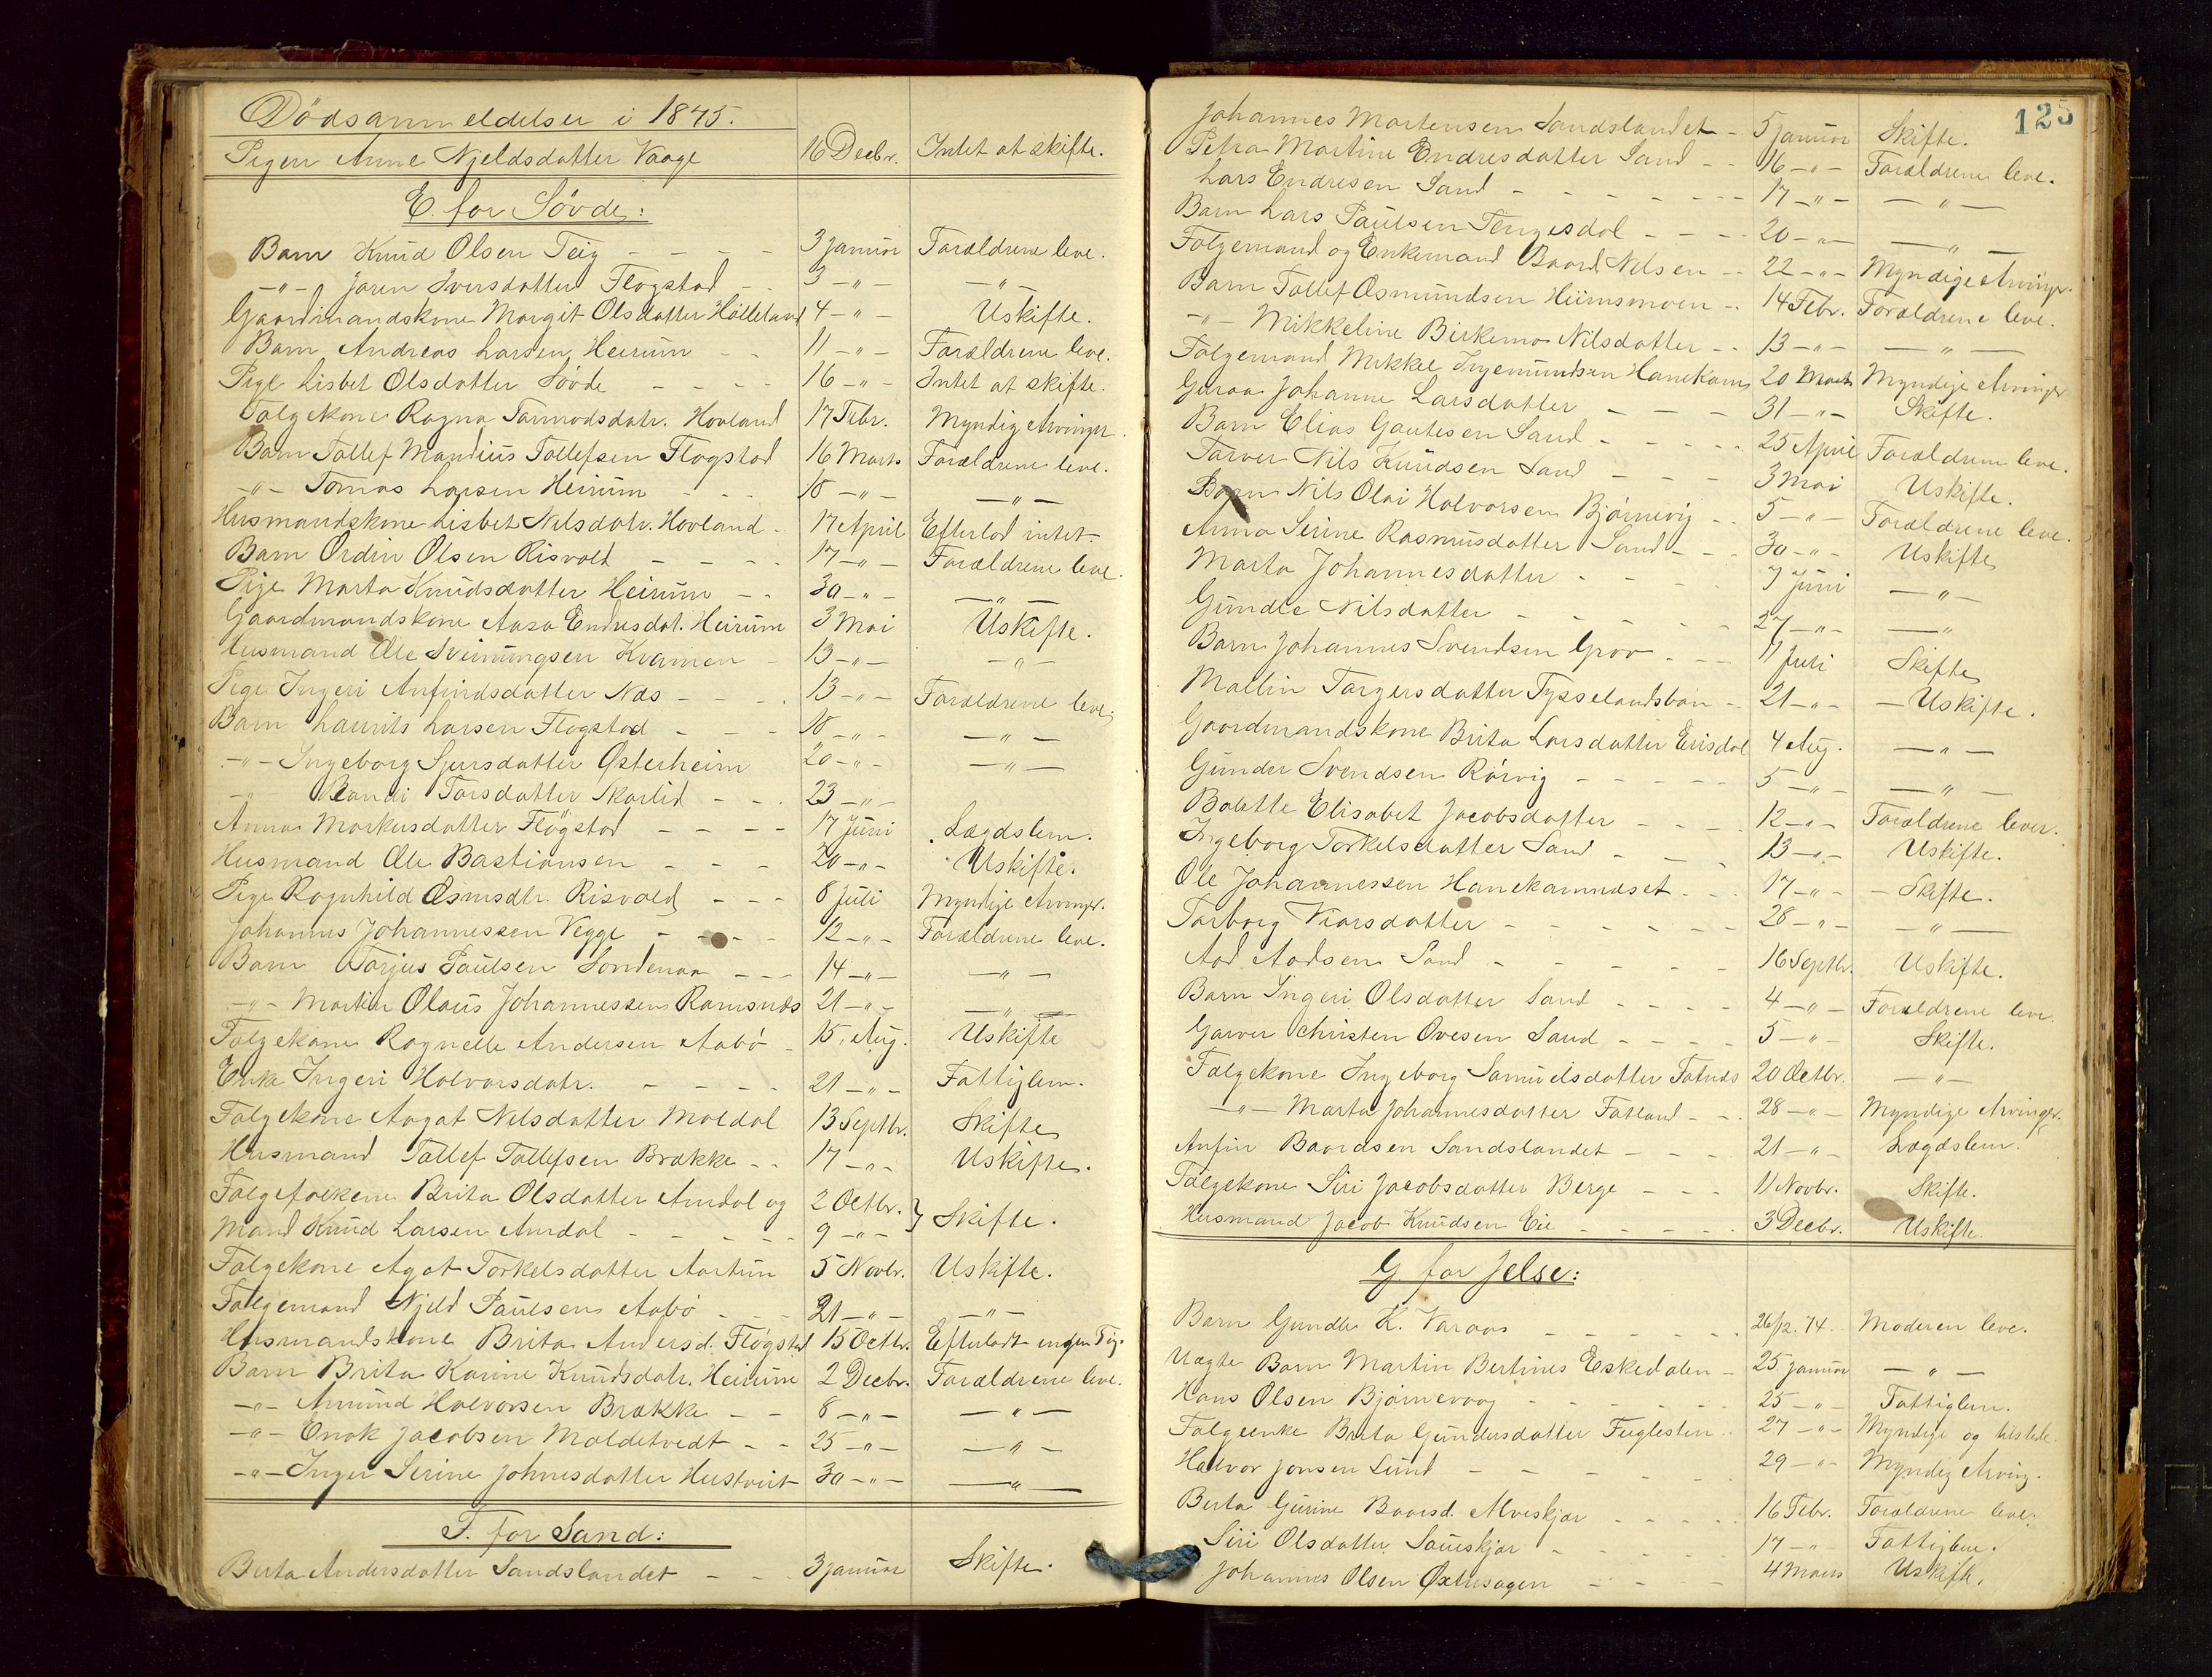 Dödsanmeldelser i 1875.
Pigen Anne Njeldsdatter Vaage 16 Decbr. Intet at skifte.
E. for Sövde:
Barn Knud Olsen Teig - - - - 3 Januar Forældrene leve.
-"- Joren Iversdatter Flogstad - - 3 -"- -"-
Gaardmandskone Margit Olsdatter Hölleland 4 -"- Uskifte.
Barn Andreas Larsen Heirum - - 11 -"- Forældrene leve.
Pige Lisbet Olsdatter Sövde - - - - 16 -"- Intet at skifte.
Folgekone Ragna Tarmodsdatr. Hovland 17 Febr. Myndig Arvinger.
Barn Tollef Mandius Tollefsen Flogstad 16 Marts Forældrene leve.
-"- Tomas Larsen Heirum - - - 18 -"- -"-
Husmandskone Lisbet Nilsdatr. Hovland - 17 April Efterlod intet.
Barn Ordin Olsen Risvold - - - - 17 -"- Forældrene leve.
Pige Marta Knudsdatter Heirum - - 30 -"- -"-
Gaardmandskone Aasa Endresdat. Heirum 3 Mai Uskifte.
Husmand Ole Sveinungsen Kvamen - 13 -"- -"-
Pige Ingeri Anfindsdatter Næs - - - 13 -"- Forældrene leve.
Barn Laurits Larsen Flogstad - - - 18 -"- -"-
-"- Ingeborg Sjursdatter Østerheim 20 -"- -"-
-"- Randi Torsdatter Skarlid - - - 23 -"-
Anna Markusdatter Flögstad - - - - 17 Juni Lægdslem.
Husmand Ole Bastiansen - - - 20 -"- Uskifte.
Pige Ragnhild Osmsdtr. Risvold - - - 8 Juli Myndige Arvinger.
Johannes Johannessen Vegge - - - - 12 -"- Forældrene leve.
Barn Torjus Paulsen Sondenaa - - - 14 -"- -"-
-"- Martin Olaus Johannessen Ramsnæs 21 -"- -"-
Folgekone Ragnelle Andersen Aabö - 15. Aug. Uskifte
Enke Ingeri Halvorsdatr. - - - - 21 -"- Fattiglem.
Folgekone Aagat Nilsdatter Moldal 13 Septbr. Skifte
Husmand Tollef Tollefsen Brække - - 17 -"- Uskifte.
Folgefolkene Brita Olsdatter Amdal og 2 Octbr. } Skifte.
Mand Knud Larsen Amdal - - - - - 9 -"-
Folgekone Agat Torkelsdatter Aartun 5 Novbr. Uskifte.
Folgemand Njeld Paulsen Aabö - - - 21 -"- -"-
Husmandskone Brita Andersd. Flögstad 15 Octbr. Efterlodt ingen Ting.
Barn Brita Karine Knudsdatr. Heirum 2 Decbr. Forældrene leve.
-"- Amund Halvorsen Brække - - 8 -"- -"-
-"- Enok Jacobsen Moldetvedt - - 25 -"- -"-
-"- Inger Serine Johnnesdatter Hustveit 30 -"- -"-
F. for Sand:
Berta Andersdatter Sandslandet - - - 3 Januar Skifte.
125
Johannes Mortensen Sandslandet - 5 Januar Skifte.
Petra Martine Endresdatter Sand - - 16 -"- Forældrene leve.
Lars Endresen Sand - - - - - - - 17 -"- -"-
Barn Lars Paulsen Tengesdal - - - - 20 -"- -"-
Folgemand og Enkemand Baard Nilsen - - 22 -"- Myndige Arvinger.
Barn Tollef Osmundsen Hiimsmoen - - 14 Febr. Forældrene leve.
-"- Mikkeline Birkemo Nilsdatter - - 13 -"- -"-
Folgemand Mikkel Ingemundsen Hanekam 20 Marts Myndige Arvinger
Guroa Johanne Larsdatter - - - - 31 -"- Skifte.
Barn Elias Gautesen Sand - - - - - 25 April Forældrene leve.
Farver Nils Knudsen Sand - - - 3 Mai Uskifte.
Barn Nils Olai Halvorsen Bjørnevig - - 5 -"- Forældrene leve.
Anna Serine Rasmusdatter Sand - - - 30 -"- Uskifte
Marta Johannesdatter - - - - - 7 Juni -"-
Gundle Nilsdatter - - - - - - 27 -"- -"-
Barn Johannes Svendsen Grov - - - 11 Juli Skifte
Mallin Targersdatter Tysselandsbøn - 21 -"- Uskifte.
Gaardmandskone Brita Larsdatter Erisdal 4 Aug. -"-
Gunder Svendsen Rörvig - - - - - 5 -"- -"-
Bolette Elisabet Jacobsdatter - - - - 12 -"- Forældrene lever.
Ingeborg Torkelsdatter Sand - - - - 13 -"- Uskifte.
Ole Johannessen Hanekamhaset - - - 17 -"- Skifte.
Torborg Viarsdatter - - - - - - 28 -"- -"-
Aad Aadsen Sand - - - - - - 16 Septbr. Uskifte.
Barn Ingeri Olsdatter Sand - - - - 4 -"- Forældrene leve.
Garver Christen Ovesen Sand - - - - 5 -"- Skifte.
Folgekone Ingeborg Samuelsdatter Fatnæs 20 Octbr. -"-
-"- Marta Johannesdatter Fatland - - - 28 -"- Myndige Arvinger.
Anfin Baardsen Sandslandet - - - - 21 -"- Lægdslem.
Folgekone Siri Jacobsdatter Berge - - - 11 Novbr. Skifte.
Husmand Jacob Knudsen Eie - - - - - 3 Decbr. Uskifte.
G for Jelse:
Barn Gundle K. Varaas - - - - - - 26/12. 74. Moderen leve.
Uægte Barn Martin Bertines Eskedalen - 25 Januar -"-
Hans Olsen Bjørnevaag - - - - - - 25 -"- Fattiglem.
Folgeenke Brita Gundersdatter Fuglestein - - 27 -"- Myndige og tilstede.
Halvor Jonsen Lund - - - - - - 29 -"- Myndig Arving.
Berta Gurine Baarsd. Alveskjær - - - - 16 Febr. Forældrene leve.
Siri Olsdatter Saueskjær - - - - 17 -"- Fattiglem.
Johannes Olsen Øxtrusogen - - - 4 Marts Uskifte.